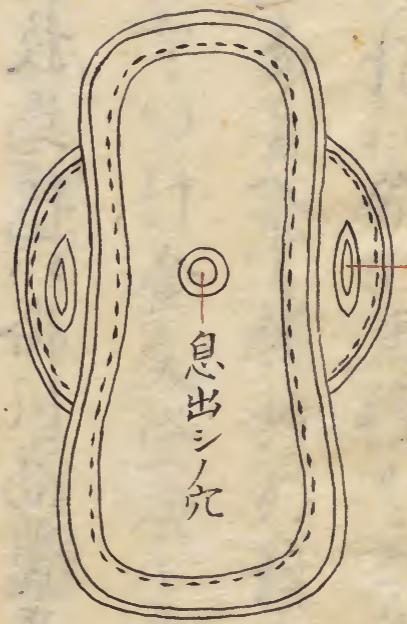 息出シノ穴